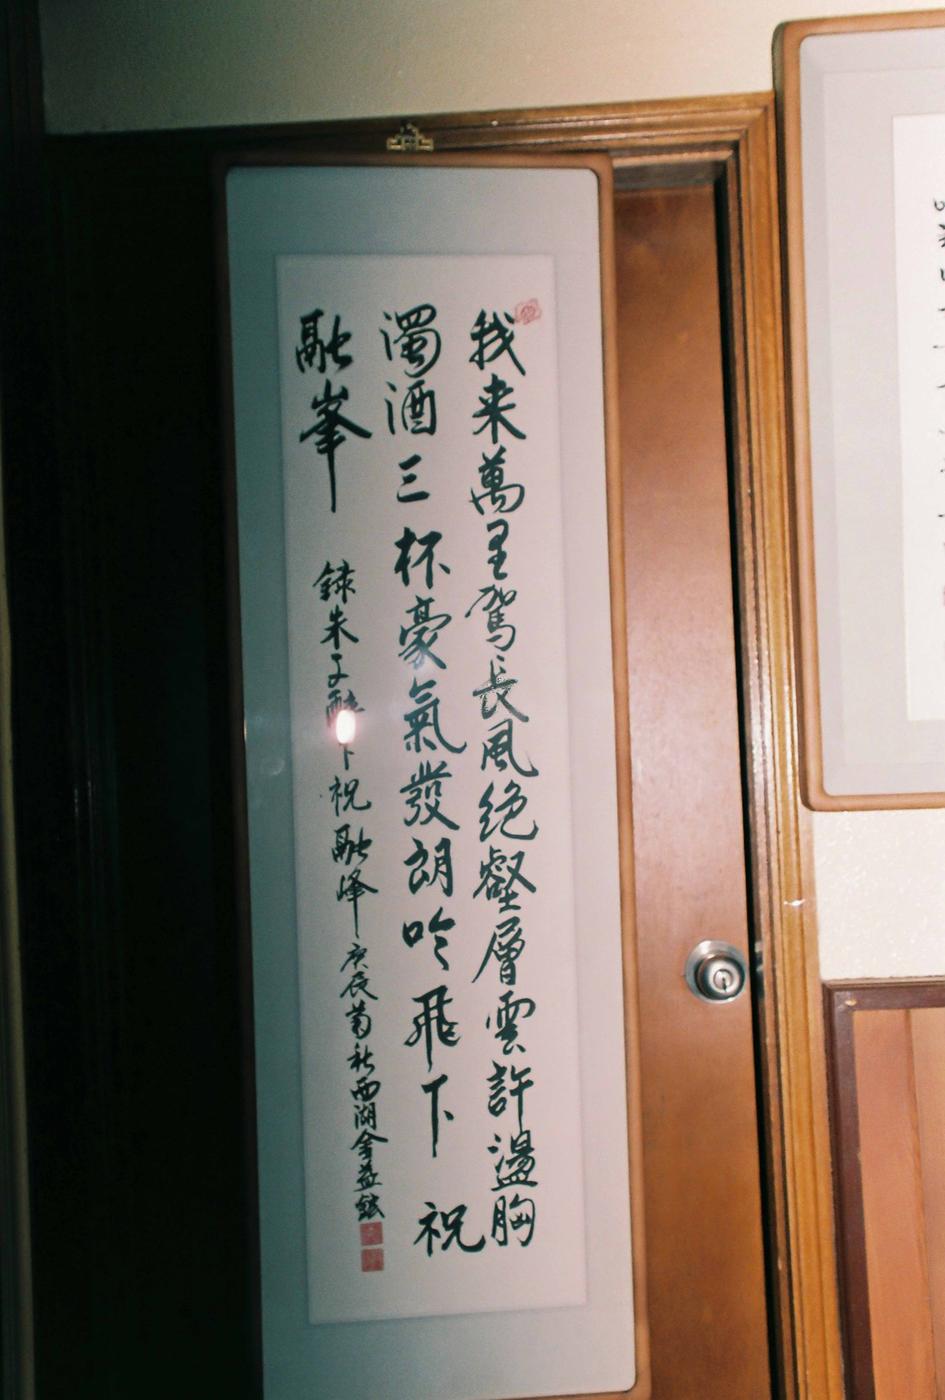 我来萬里駕長風絶壑層雲許盪胸
濁酒三杯豪氣發朗吟飛下祝
融峯
録朱子醉下祝融峰庚辰菊秋西湖金益